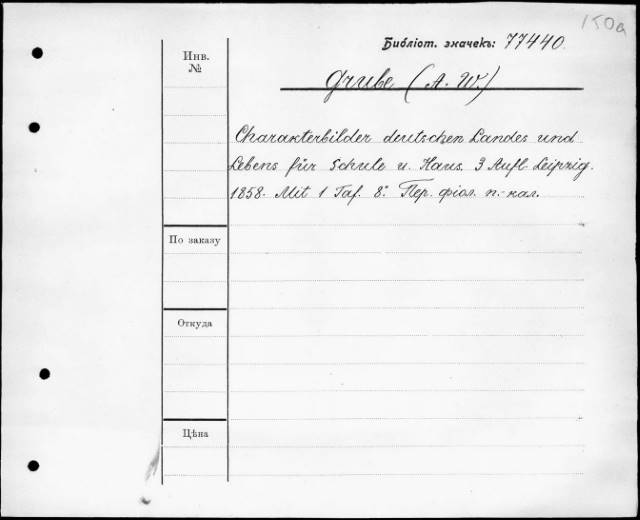 150a
Библіот. значекъ: 77440.
Инв.
№
Grube (A. W.)
Charakterbilder deutschen Landes und
Lebens für Schule u. Haus. 3 Aufl. Leipzig.
1858. Mit 1 Taf. 8°. Пер. фіол. п.-кал.
По заказу
Откуда
Цѣна